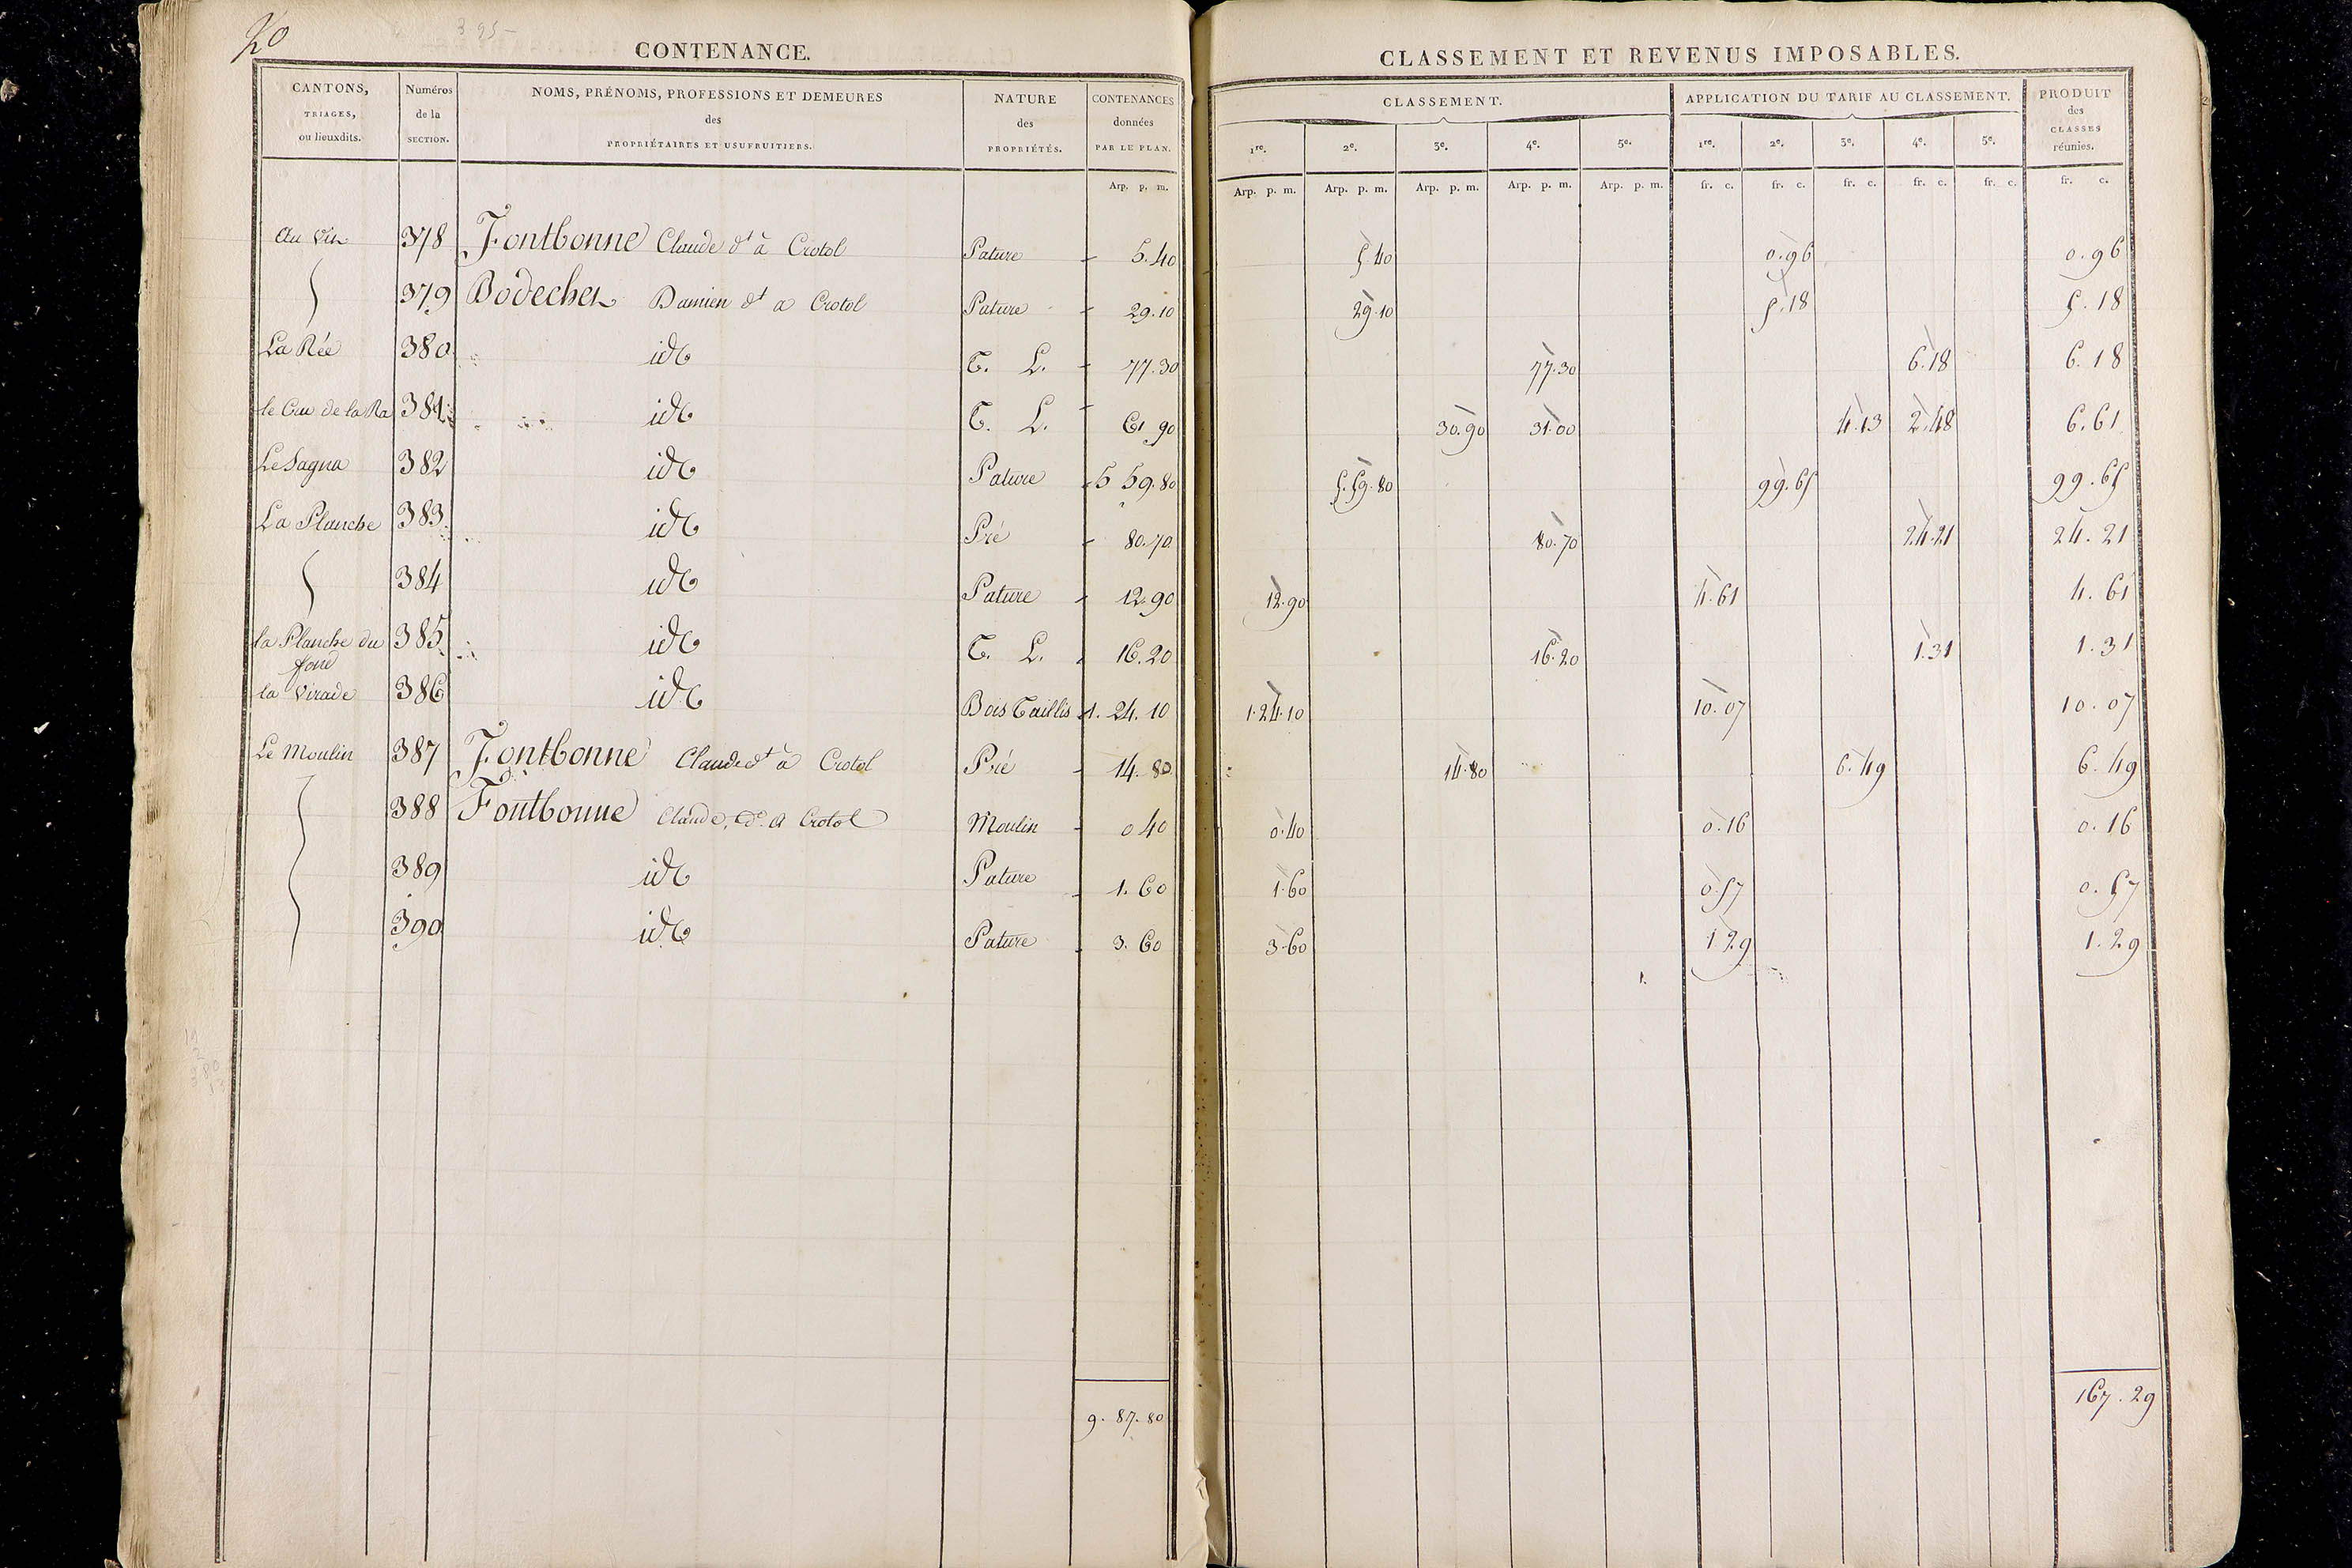 20
395
CONTENANCE.
CLASSEMENT ET REVENUS IMPOSABLES.
CANTONS, TRIAGES, ou lieuxdits. Numéros de la SECTION. NOMS, PRÉNOMS, PROFESSIONS ET DEMEURES des PROPRIÉTAIRES ET USUFRUITIERS. NATURE des PROPRIÉTÉS. CONTENANCES données PAR LE PLAN. CLASSEMENT. APPLICATION DU TARIF AU CLASSEMENT. PRODUIT des CLASSES réunies.
1re. 2e. 3e. 4e. 5e. 1re. 2e. 3e. 4e. 5e.
Arp. p. m. Arp. p. m. Arp. p. m. Arp. p. m. Arp. p. m. Arp. p. m. fr. c. fr. c. fr. c. fr. c. fr. c. fr. c.
Au Vin 378 Fontbonne Claude dt à Crotol Pature 5.40 5 40 0.96 0.96
379 Bodecher Damien dt a Crotol Pature 29.10 29.10 5.18 5.18
La Rée 380 id T. L. 77.30 77.30 6.18 6.18
le Cru de la Ra 381 id T. L. 61 90 30.90 31.00 4.13 2.48 6.61
Le Sagna 382 id Pature 5 59.80 5.59.80 99.65 99.65
La Planche 383 id Pré 80.70 80.70 24.21 24.21
384 id Pature 12.90 12.90 4.61 4.61
la Planche du fond 385 id T. L. 16.20 16.20 1.31 1.31
la Virade 386 id Bois Taillis 1. 24. 10 1.24.10 10.07 10.07
Le Moulin 387 Fontbonne Claude dt à Crotol Pré 14.80 14.80 6.49 6.49
388 Fontbonne Claude, dt a Crotol Moulin 0 40 0.40 0.16 0.16
389 id Pature 1.60 1.60 0.57 0.57
390 id Pature 3.60 3.60 1 29 1.29
9. 87. 80 167.29